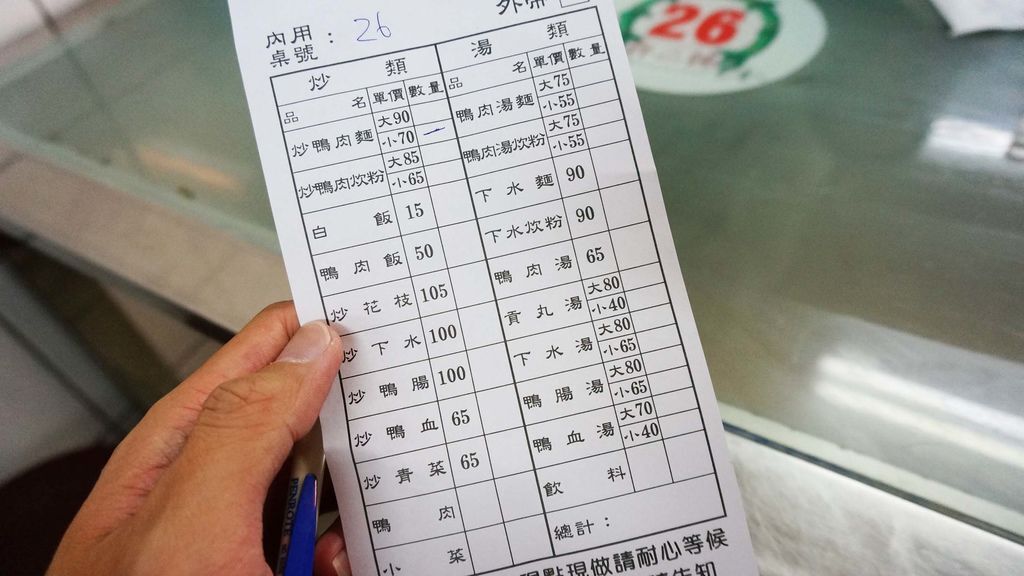 外帶
內用：26
桌號
炒 類
品 名 單價 數量
炒鴨肉麵 大90
小70 一
炒鴨肉炊粉 大85
小65
白 飯 15
鴨肉飯 50
炒花枝 105
炒下水 100
炒鴨腸 100
炒鴨血 65
炒青菜 65
鴨 肉
小 菜
湯 類
品 名 單價 數量
鴨肉湯麵 大75
小55
鴨肉湯炊粉 大75
小55
下水麵 90
下水炊粉 90
鴨肉湯 65
貢丸湯 大80
小40
下水湯 大80
小65
鴨腸湯 大80
小65
鴨血湯 大70
小40
飲 料
總計：
現點現做請耐心等候
告知
26